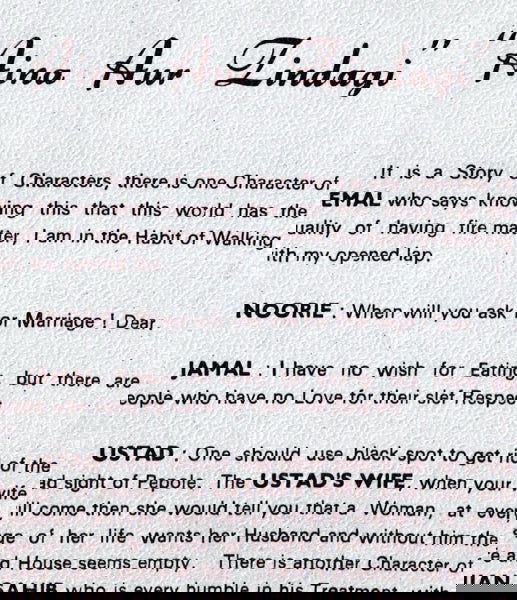 " Aur Zindagi "
It is a Story
f Characters, there is one Character of
EMAL who says know
ing this that this world has the
uality of having fire ma
ter, I am in the Habit of Walking
ith my opened lap.
NOORIE : When will you ask
or Marriage ! Dear
JAMAL : I have no wish for Eating
but there are
eople who have no Love for their slef Respe
USTAD : One should use black spot to get rid
of the
ad sight of Pepole. The USTAD'S WIFE, when your
wife
ill come then she would tell you that a Woman, at every
ge of her life wants her Husband and without him the
g House seems empty. There is another Character of
JAN
SAHIB who is every humble in his Treatment with